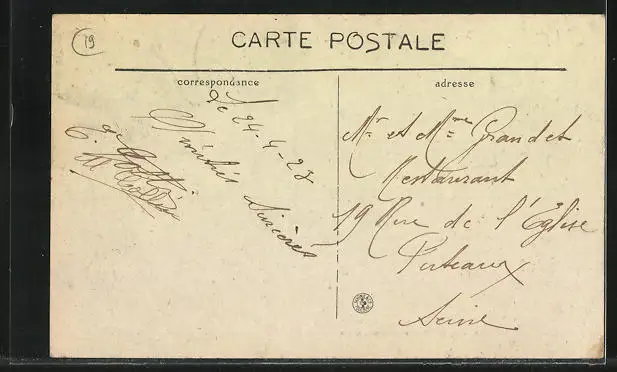 19
CARTE POSTALE
correspondance
adresse
Le 24-4-23
Amitiés
Sincères
Mr et Mme Grandet
Restaurant
19 Rue de l'Église
Puteaux
Seine